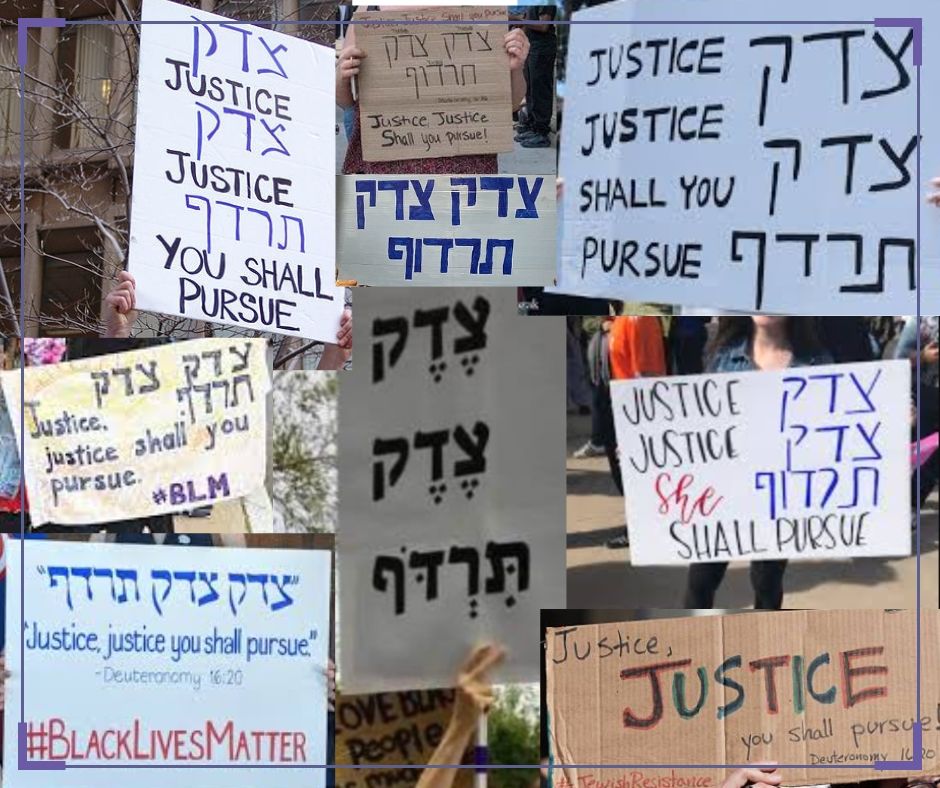 צדק
JUSTICE
צדק
JUSTICE
תרדף
YOU SHALL
PURSUE
Justice, Justice Shall you pursue
צדק צדק
תרדוף
Justice, Justice
Shall you pursue!
צדק צדק
תרדוף
JUSTICE צדק
JUSTICE צדק
SHALL YOU
PURSUE תרדף
צדק צדק
תרדף
Justice,
justice shall you
pursue.
#BLM
צֶדֶק
צֶדֶק
תִּרְדֹּף
JUSTICE צדק
JUSTICE צדק
She תרדוף
SHALL PURSUE
"צדק צדק תרדף"
"Justice, justice you shall pursue."
-Deuteronomy 16:20
#BLACKLIVESMATTER
LOVE BLACK
PeoPLe
Justice,
JUSTICE
you shall pursue!
Deuteronomy 16:20
#JewishResistance